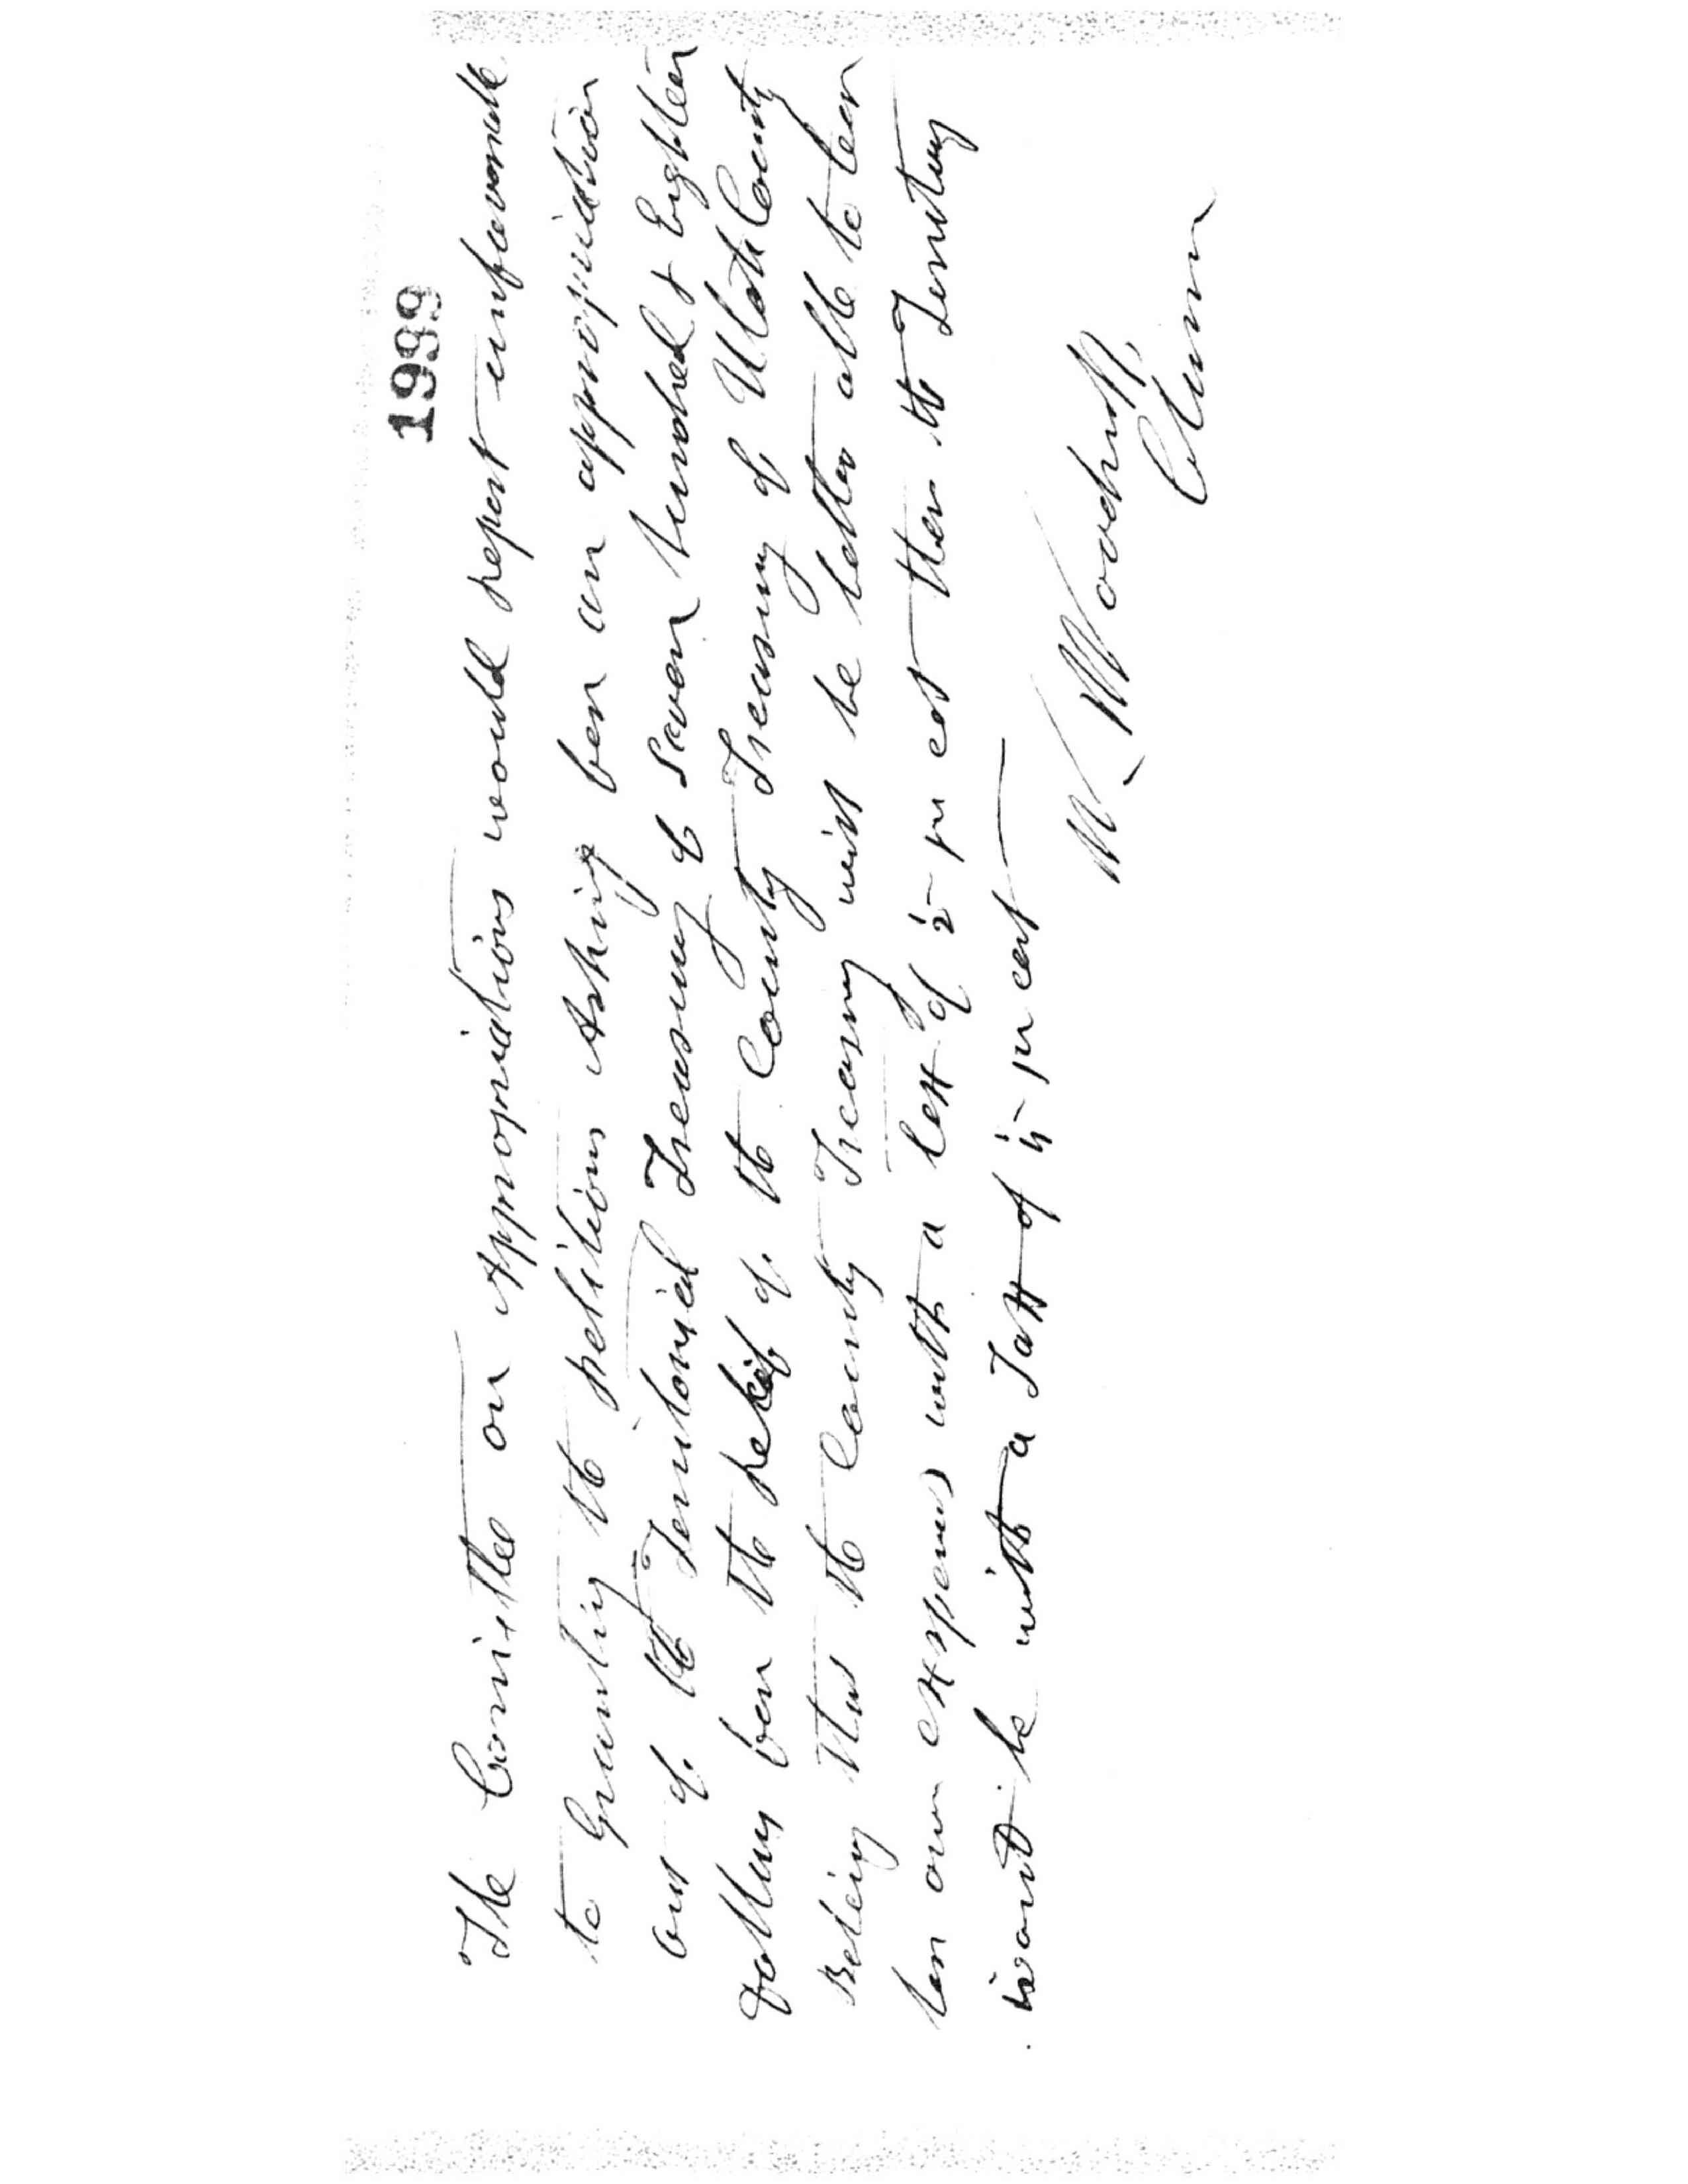 1999
The Comittee on Appropriations would report unfavorable
to Granting the petitions Asking for an appropriation
out of the Territorial Treasury of Seven hundred & Eighteen
dollars for the relief of the County Treasury of Utah County
Beleivg that the County Treasury will be better able to bear
ther own exspenses with a tax of 1/2 pr cet then the Territory
would be with a Tax of 1/4 pr cent
W. Woodruff,
Chmn